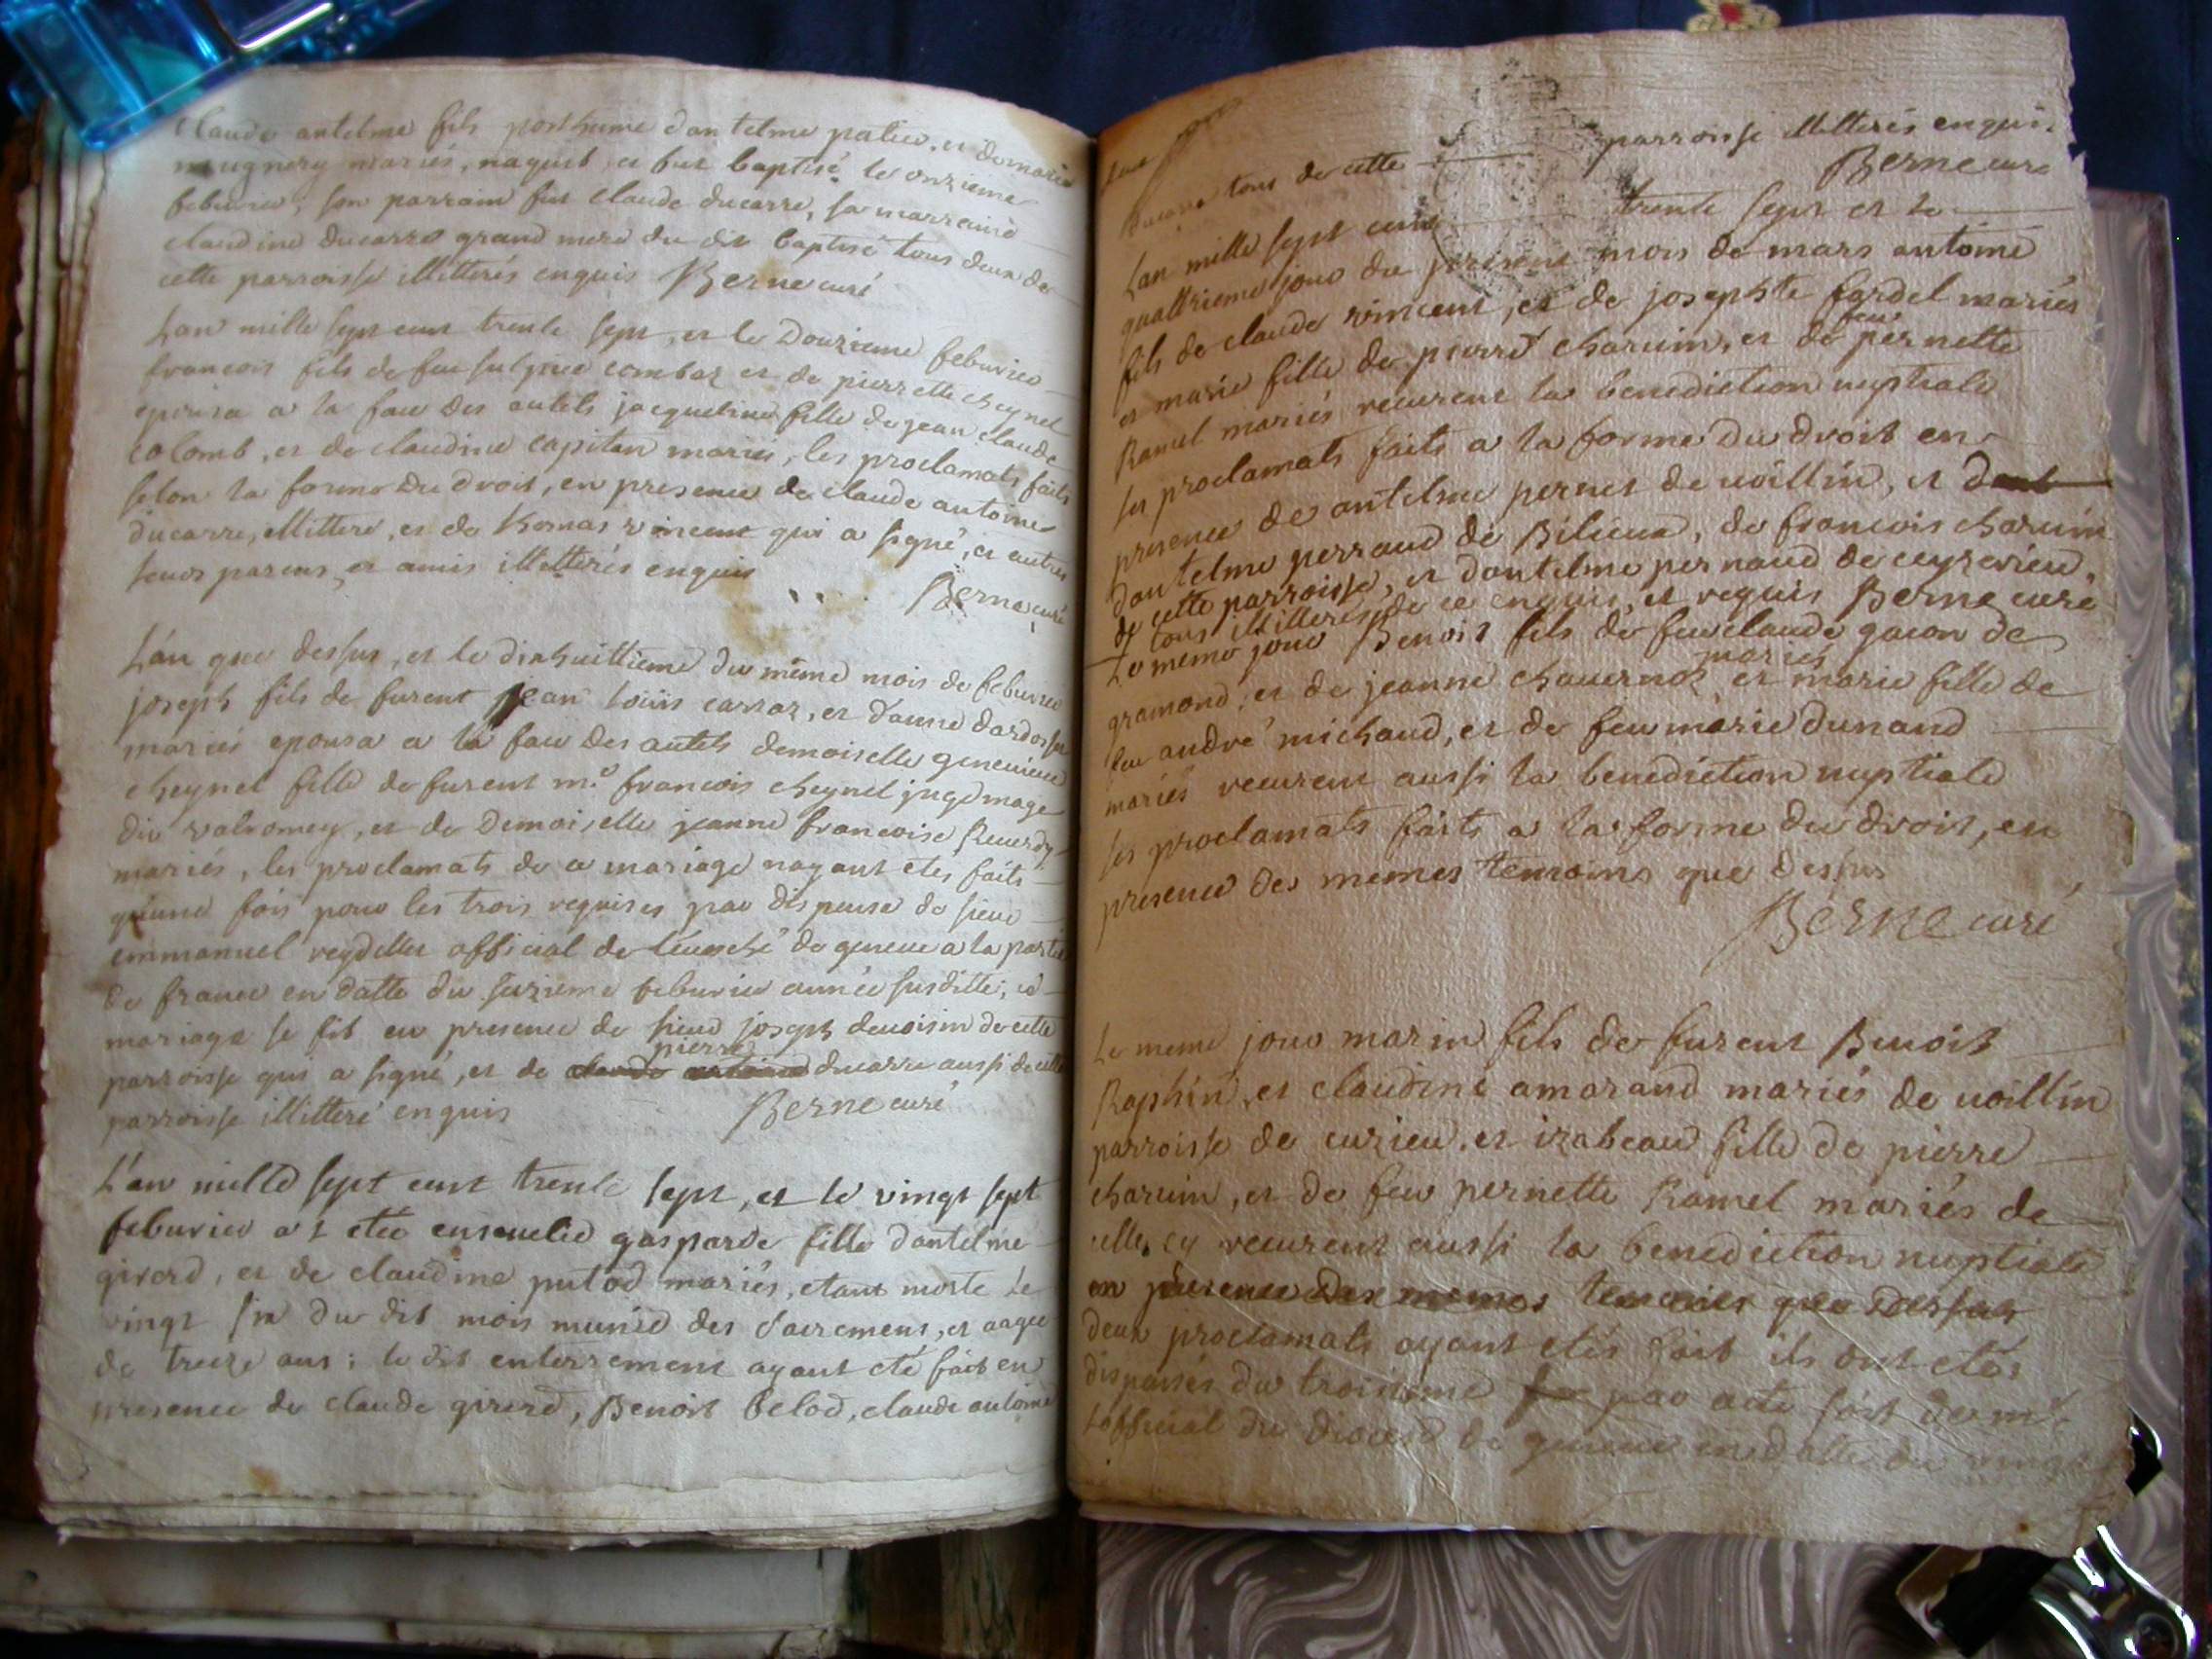 Claude antelme fils posthume dantelme patin, et de marie
mugnery mariés, naquit et fut baptisé le onzieme
feburier, son parrain fut claude ducarre, sa marraine
claudine ducarre grand mere du dit baptisé tous deux de
cette parroisse illitterés enquis Berne curé
Lan mille sept cent trente sept, et le Douzieme feburier
francois fils de feu sulpice combaz et de pierrette cheynel
epousa a la face des autels jacqueline fille de jean claude
colomb, et de claudine capitan mariés, les proclamats faits
selon la forme du droit, en presence de claude antoine
ducarre, illittere, et de thomas vincent qui a signé, et autres
leurs parens et amis illitterés enquis
Berne curé
L'an que dessus, et le dixhuittieme du même mois de feburier
joseph fils de furent jean louis carraz, et d'anne dardossin
mariés epousa a la face des autels demoiselle genevieve
cheynel fille de furent m.e francois cheynel juge mage
du valromey, et de Demoiselle jeanne francoise Reuerdy
mariés, les proclamats de ce mariage nayant etés faits
qu'une fois pour les trois requises par dispense de sieur
emmanuel reydellet official de leueché de geneue a la partie
de france en datte du seizieme feburier année susditte; ce
mariage se fit en presence de sieur joseph deuoisin de cette
pierre
parroisse qui a signé, et de claude antoine ducarre aussi de cette
parroisse illitteré enquis Berne curé
L'an mille sept cent trente sept, et le vingt sept
feburier a etée enseuelie gasparde fille dantelme
girerd, et de claudine putod mariés, etant morte le
vingt six du dit mois munie des sacremens, et aagée
de treize ans; le dit enterrement ayant eté fait en
presence de claude girerd, Benoit Belod, claude antoine
ducarre tous de cette parroisse illitterés enquis
Berne curé
Lan mille sept cent trente sept et le
quattrieme jour du present mois de mars antoine
fils de claude vincent, et de josephte fardel mariés
feu
et marie fille de pierre charuin, et de pernette
Ramel mariés recurent la benediction nuptiale
les proclamats faits a la forme du droit en
presence de antelme pernet de uoillin, et dant
dantelme perraud de Bilieux, de francois charuin
de cette parroisse, et dantelme pernaud de ceyzerieu,
tous illitterés de ce enquis, et requis Berne curé
Le meme jour Benoit fils de feu claude gacon de
mariés
gramond, et de jeanne chauernoz et marie fille de
feu andré michaud, et de feu marie Dunand
mariés recurent aussi la benediction nuptiale
les proclamats faits a la forme du droit, en
presence des memes temoins que dessus
Berne curé
Le meme jour marin fils de furent Benoit
Raphin, et claudine amarand mariés de uoillin
parroisse de cuzieu, et izabeau fille de pierre
charuin, et de feu pernette Ramel mariés de
celle cy recurent aussi la benediction nuptiale
en presence des memes temoins que dessus
deux proclamats ayant etés fait ils ont etés
dispensés du troisieme par acte fait de m.r
Lofficial du diocese de geneue en datte du vingt